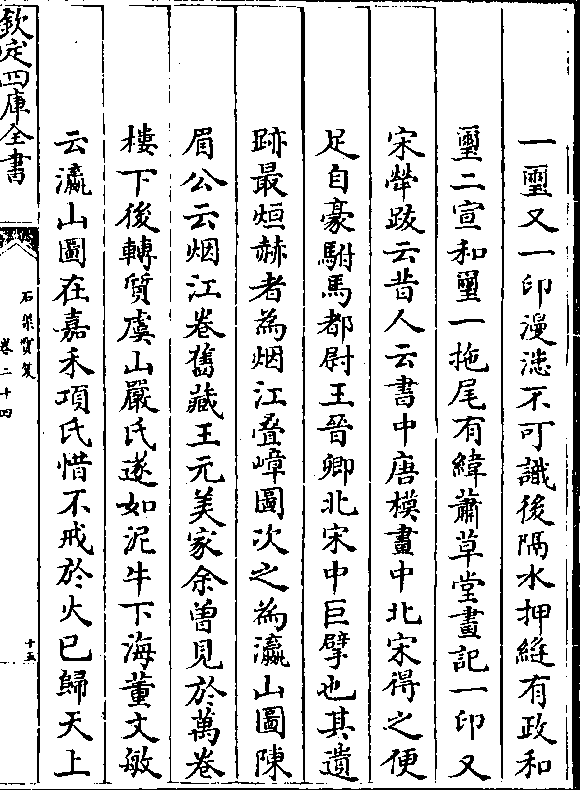 一璽又一印漫漶不可識後隔水押縫有政和
璽二宣和璽一拖尾有緯蕭草堂畫記一印又
宋犖跋云昔人云書中唐模畫中北宋得之便
足自豪駙馬都尉王晉卿北宋中巨擘也其遺
跡最烜赫者為烟江疊嶂圖次之為瀛山圖陳
眉公云烟江卷舊藏王元美家余曽見於萬卷
樓下後轉質虞山嚴氏遂如泥牛下海董文敏
云瀛山圖在嘉禾項氏惜不戒於火已歸天上
欽定四庫全書
石渠寶笈
卷二十四
十五